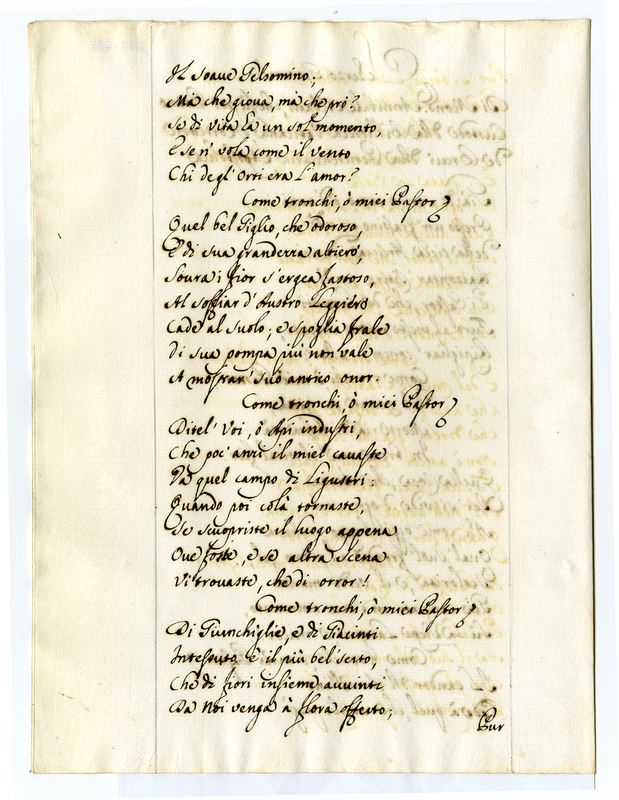 Il soave Gelsomino;
Mà che giova, mà che prò?
Se di vita hà un sol momento,
E se n' vola come il vento
Chi degl' Orti era l'amor?
Come tronchi, ò miei Pastor
Quel bel Giglio, che odoroso,
E di sua grandezza altiero,
Soura i fior s'ergea fastoso,
Al soffiar d'Austro leggiero
Cade al suolo; e spoglia frale
di sua pompa più non vale
A mostrar suo antico onor.
Come tronchi, ò miei Pastor
Ditel' Voi, ò Api industri,
Che poc' anzi il miel cavaste
Da quel campo di Ligustri:
Quando poi colà tornaste,
Se scuopriste il luogo appena
Oue foste, e se altra scena
Vi trovaste, che di orror!
Come tronchi, ò miei Pastor
Di Giunchiglie, e di Giacinti
Intessuto è il più bel serto,
Che di fiori insieme auuinti
Da Noi venga à flora offerto;
Pur